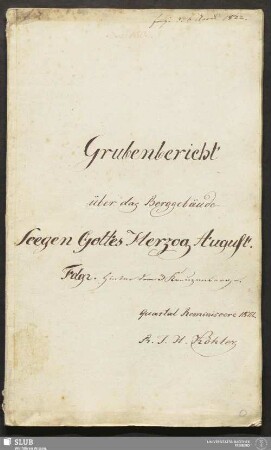 1822.
Grubenbericht
über das Berggebäude
Seegen Gottes Herzog August.
Fdgr. hinter den 3 Kreuzen
Quartal Reminiscere 1822.
Köhler
SLUB